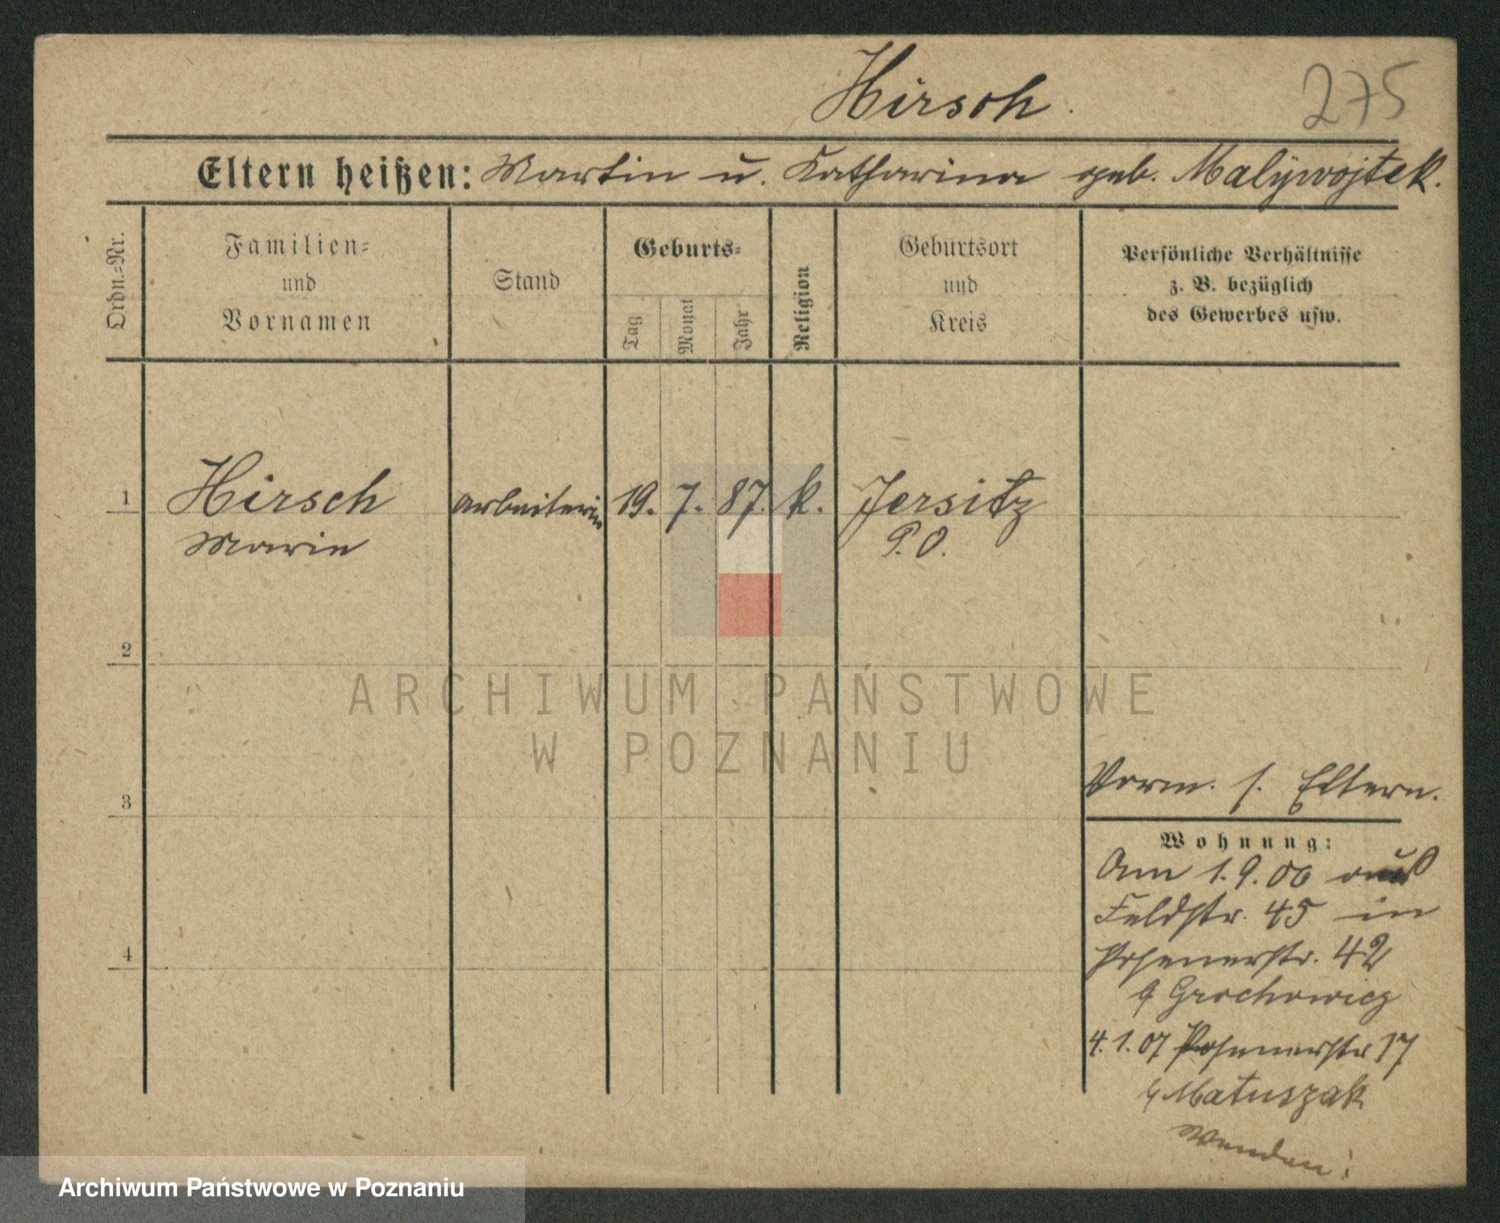 Hirsch.
275
Eltern heißen: Martin u. Katharina geb. Malÿwojtek.
Ordn.-Nr.
Familien-
und
Vornamen
Stand
Geburts-
Tag
Monat
Jahr
Religion
Geburtsort
und
Kreis
Persönliche Verhältnisse
z. B. bezüglich
des Gewerbes usw.
1 Hirsch Arbeiterin 19. 7. 87. k. Jersitz
Marie P. O.
2
ARCHIWUM PAŃSTWOWE
W POZNANIU
3
Vorm. s. Eltern.
Wohnung:
Am 1.9.06 aus
Feldstr. 45 in
4
Posenerstr. 42
Grochowicz
4.1.07 Posenerstr 17
Matuszak
Wenden!
Archiwum Państwowe w Poznaniu